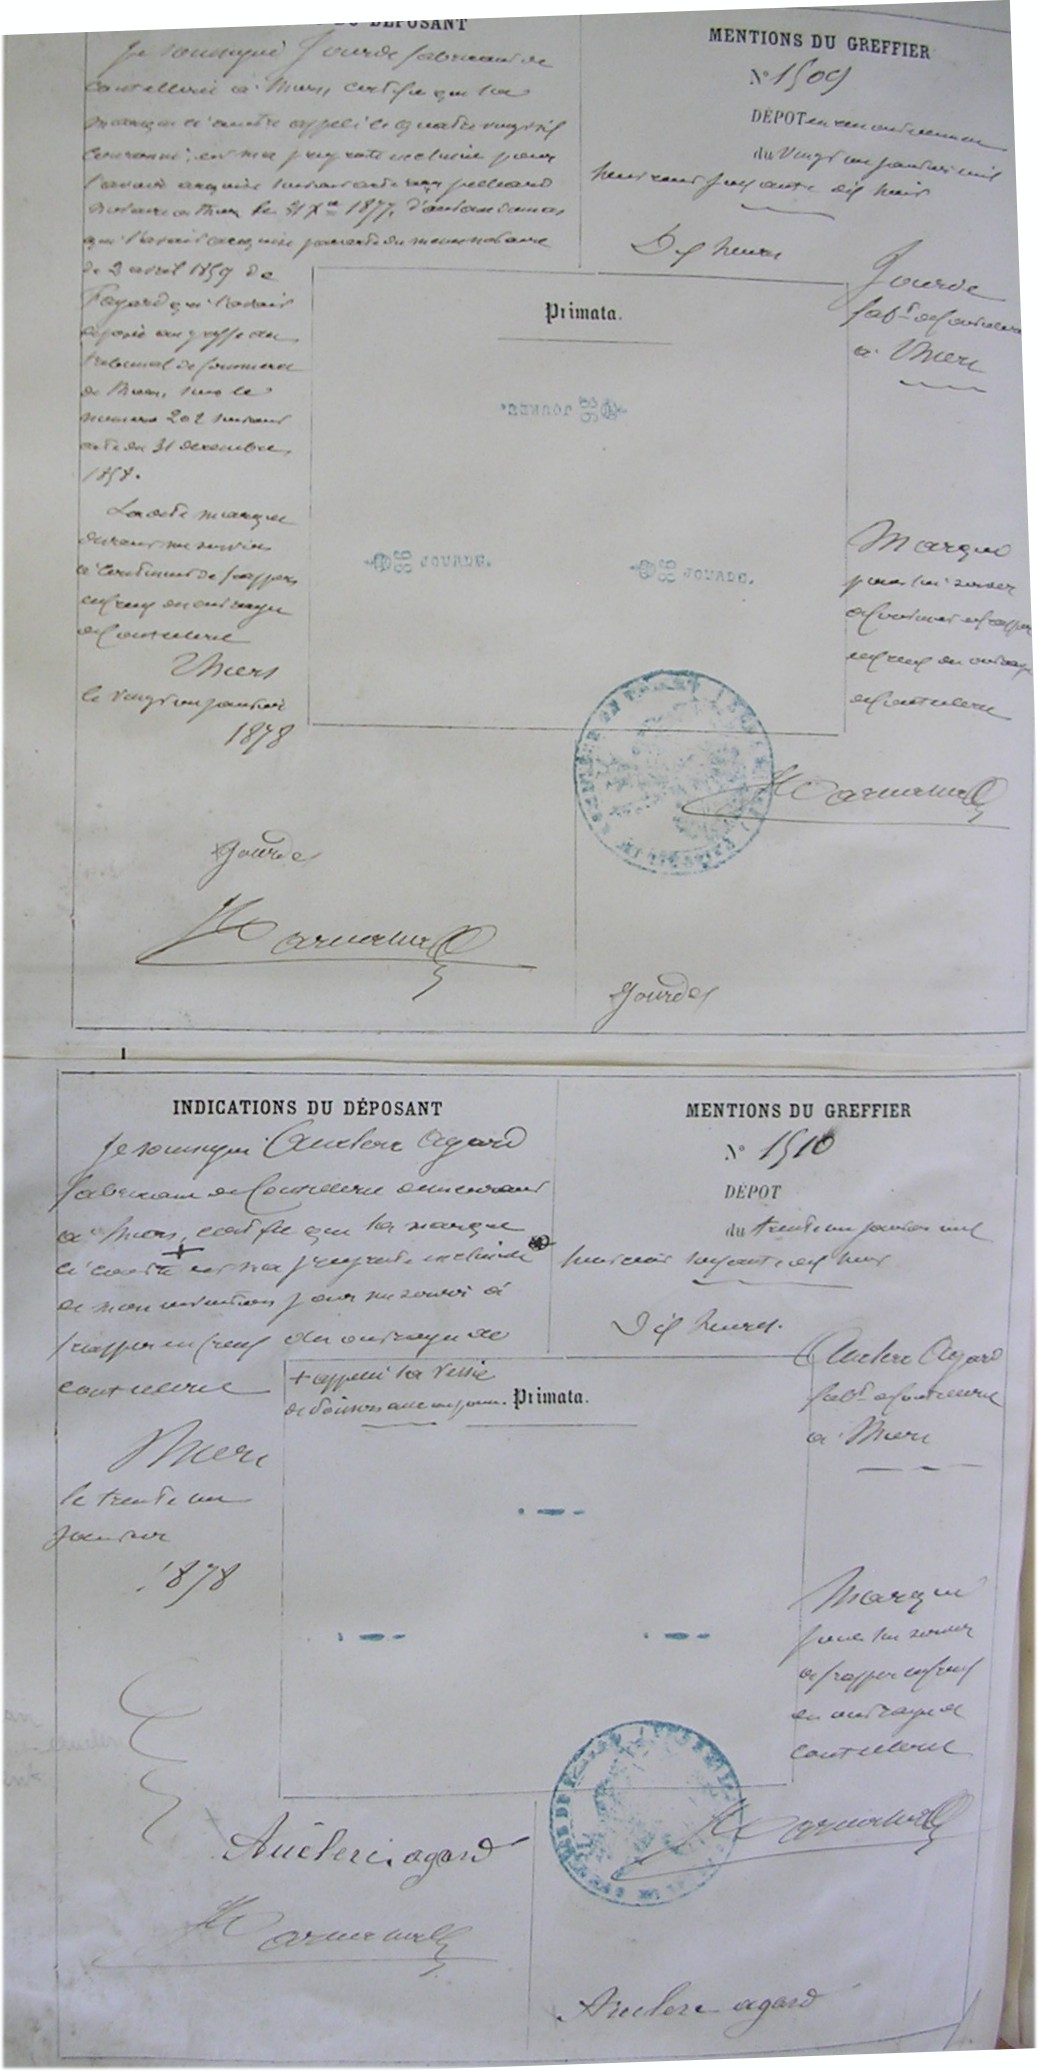 DU DÉPOSANT
Je soussigné Jourde fabricant de
coutellerie à Thiers, certifie que la
marque ci contre appelée quatre vingt six
couronné, est ma propriété exclusive pour
l'avoir acquise suivant acte reçu
notaire à Thiers le 31 Xbre 1877, d'
qui l'avait acquise par acte du même notaire
du 2 avril 1859 de
Fayard qui l'avait
déposé au greffe du
tribunal de Commerce
de Thiers, sous le
numéro 202 suivant
acte du 31 décembre
1858.
La dite marque
devant me servir
à continuer de frapper
en creux des ouvrages
de Coutellerie
Thiers
le vingt un janvier
1878
Jourde
MENTIONS DU GREFFIER
N° 1509
DÉPOT en renouvellement
du vingt un janvier mil
huit cent soixante dix huit
Dix heures
Jourde
fabt de Coutellerie
à Thiers
Primata.
86 JOURDE.
86 JOURDE.
86 JOURDE.
Marque
pour lui servir
à continuer de frapper
en creux des ouvrages
de Coutellerie
Jourde
INDICATIONS DU DÉPOSANT
Je soussigné Auclere Agard
fabricant de Coutellerie demeurant
à Thiers, certifie que la marque
ci contre + est ma propriété exclusive
de mon invention pour me servir à
frapper en creux des ouvrages de
coutellerie
+ appelée la Vessie
de poisson
Thiers
le trente un
janvier
1878
Auclere agard
MENTIONS DU GREFFIER
N° 1510
DÉPOT
du trente un janvier mil
huit cent soixante dix huit
Dix heures.
Auclere Agard
fabt de Coutellerie
à Thiers
Primata.
Marque
pour lui servir
à frapper en creux
des ouvrages de
Coutellerie
Auclere agard